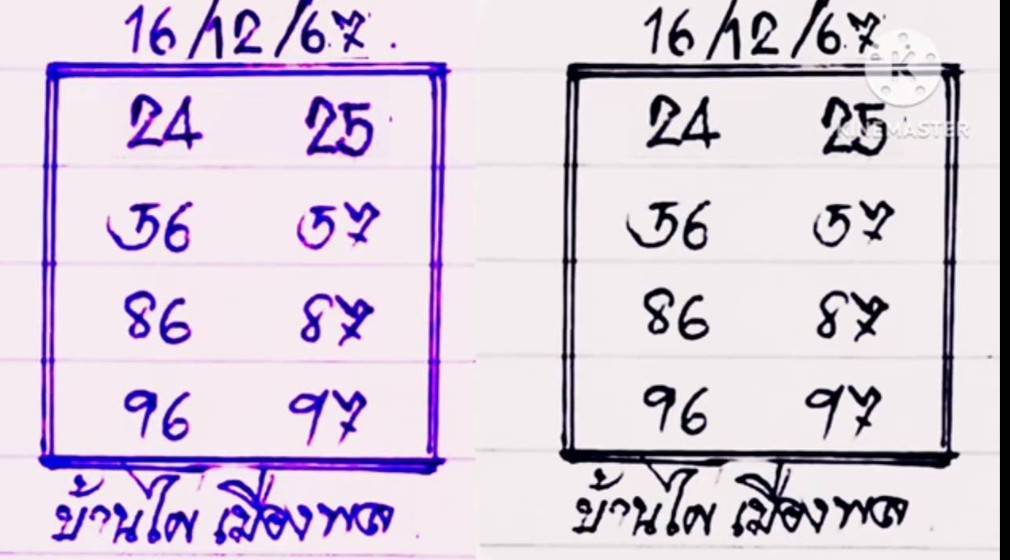 16/12/67
24 25
56 57
86 87
96 97
บ้านไผ่ เมืองพล
16/12/67
24 25
56 57
86 87
96 97
บ้านไผ่ เมืองพล
KINEMASTER